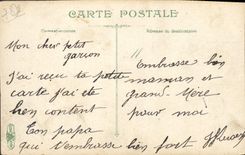 CARTE POSTALE
Correspondance
Adresse du destinataire
Mon cher petit
garçon
J'ai reçu ta petite
carte j'ai été
bien content
Ton papa
qui t'embrasse bien fort
Embrasse bien
maman et
grand Mère
pour moi